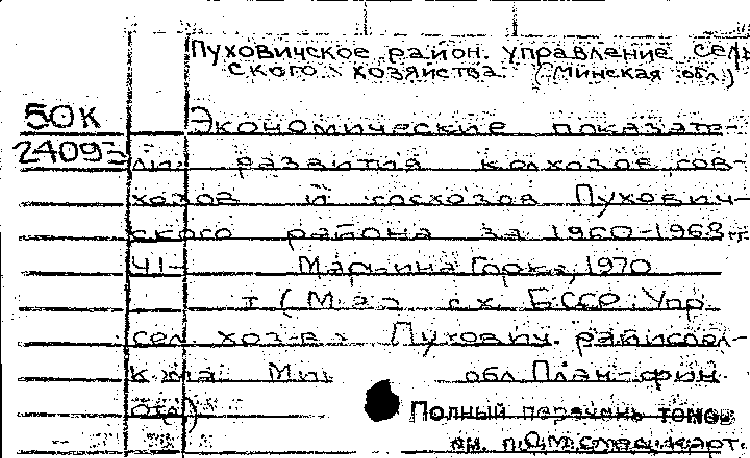 Пуховичское район. управление сель
ского хозяйства. (Минская обл.)
50К
24093
Экономические показате-
ли развития колхозов, сов-
хозов и госхозов Пухович-
ского района за 1960-1968гг.
Ч1- Марьина Горка, 1970
т (М-во с.х. БССР. Упр.
сел. хоз-ва Пухович. райиспол-
кома Мин обл. План.-фин.
отд)
Полный перечень томов
см. п.О.М.